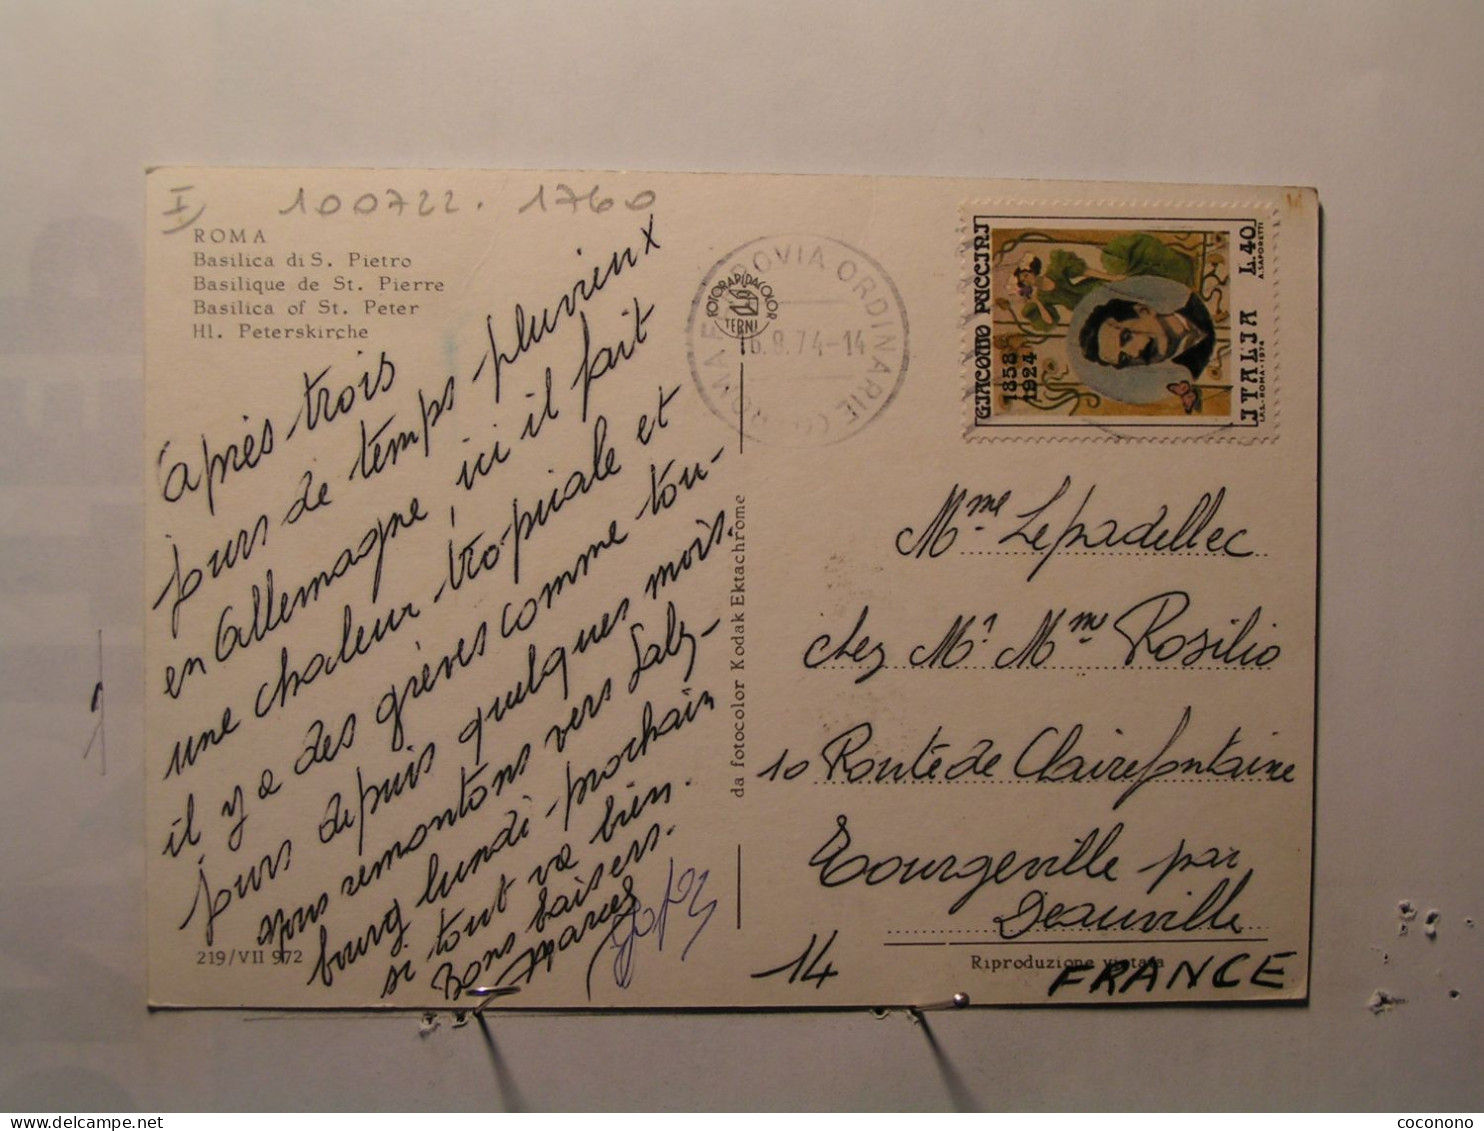 I) 100722. 1760
ROMA
Basilica di S. Pietro
Basilique de St. Pierre
Basilica of St. Peter
Hl. Peterskirche
Après trois
jours de temps pluvieux
en Allemagne, ici il fait
une chaleur tropicale et
il y a des grèves comme tou-
jours depuis quelques mois.
nous remontons vers Salz-
bourg lundi prochain
si tout va bien.
Bons baisers.
219/VII 972
da fotocolor Kodak Ektachrome
FOTORAPIDACOLOR
TERNI
ROMA FERROVIA ORDINARIE
6.8.74-14
GIACOMO PUCCINI
1858
1924
ITALIA L.40
I.P.S.-ROMA-1974 A.SAPORETTI
Mme Lepadellec
chez Mr Mme Rosilio
10 Route de Clairefontaine
Tourgeville par
Deauville
14
Riproduzione vietata
FRANCE
coconono